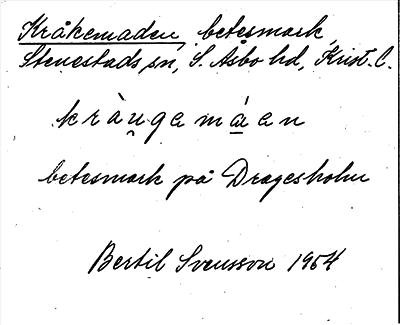 Kråkemaden, betesmark,
Stenestads sn, S. Åsbo hd, Krist. l.
kràu̯gamáen
betesmark på Dragesholm
Bertil Svensson 1954